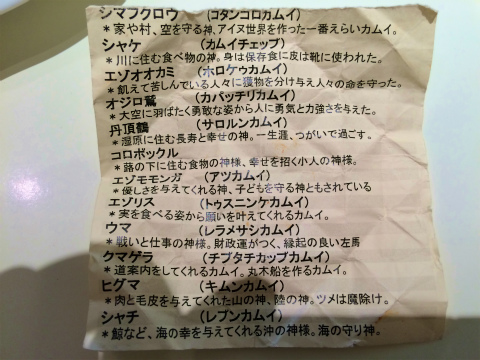 シマフクロウ （コタンコロカムイ）
＊家や村、空を守る神。アイヌ世界を作った一番えらいカムイ。
シャケ （カムイチェップ）
＊川に住む食べ物の神。身は保存食に皮は靴に使われた。
エゾオオカミ （ホロケゥカムイ）
＊飢えて苦しんでいる人々に獲物を分け与え人々の命を守った。
オジロ鷲 （カパッチリカムイ）
＊大空に羽ばたく勇敢な姿から人に勇気と力強さを与えた。
丹頂鶴 （サロルンカムイ）
＊湿原に住む長寿と幸せの神。一生涯、つがいで過ごす。
コロボックル
＊蕗の下に住む食物の神様、幸せを招く小人の神様。
エゾモモンガ （アツカムイ）
＊優しさを与えてくれる神、子どもを守る神ともされている
エゾリス （トゥスニンケカムイ）
＊実を食べる姿から願いを叶えてくれるカムイ。
ウマ （レラメサシカムイ）
＊戦いと仕事の神様。財政運がつく、縁起の良い左馬
クマゲラ （チプタチカップカムイ）
＊道案内をしてくれるカムイ。丸木船を作るカムイ。
ヒグマ （キムンカムイ）
＊肉と毛皮を与えてくれた山の神、陸の神。ツメは魔除け。
シャチ （レプンカムイ）
＊鯨など、海の幸を与えてくれる沖の神様。海の守り神。